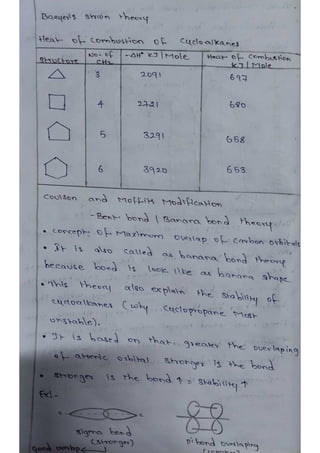 Baeyer's strain theory
Heat of combustion of Cycloalkanes
Structure No. of CH₂ -ΔH° KJ/Mole Heat of Combustion KJ/Mole
3 2091 697
4 2721 680
5 3291 658
6 3920 653
Coulson and Moffitt Modification
-Bent bond / Banana bond theory.
• concept of Maximum overlap of carbon orbitals
• It is also called as banana bond theory
because bond is look like as banana shape
• This theory also explain the stability of
cycloalkanes (why cyclopropane Most
unstable).
• It is based on that greater the overlaping
of atomic orbital stronger is the bond
• stronger is the bond ↑ = stability ↑
Ex:-
sigma bond pi bond overlaping
(stronger)
good overlap